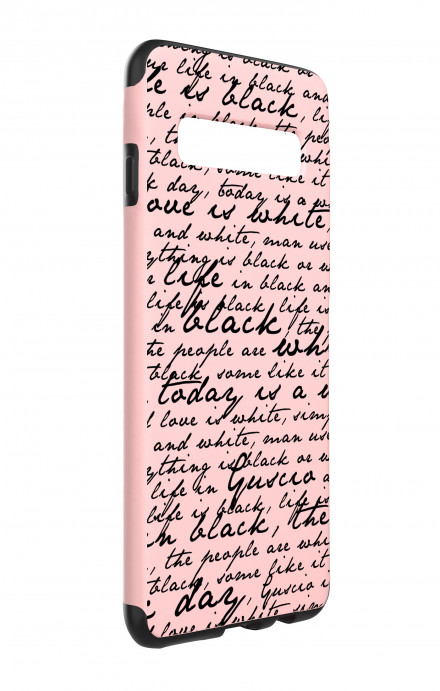 is black or
life in black and
is black, li
the
black, some like it
k day, today is a w
ove is white,
and white, man use
ything is black or w
life in black an
life is black, life is
in black the
the people are wh
black, some like it
today is a w
love is white, sim
and white, man use
ything is black or w
life in Guscio a
life is black, life is
n black, the
, the people are whi
black, some like it
k day, Guscio i
love is white